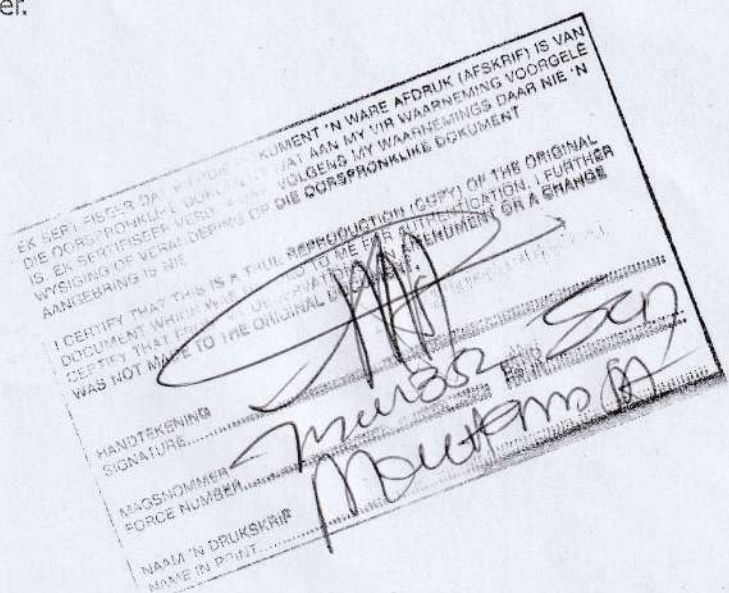 er.
EK SERTIFISEER DAT HIERDIE DOKUMENT 'N WARE AFDRUK (AFSKRIF) IS VAN
DIE OORSPRONKLIKE DOKUMENT WAT AAN MY VIR WAARNEMING VOORGELÊ
IS. EK SERTIFISEER VERDER VOLGENS MY WAARNEMINGS DAAR NIE 'N
WYSIGING OF VERANDERING OP DIE OORSPRONKLIKE DOKUMENT
AANGEBRING IS NIE
I CERTIFY THAT THIS IS A TRUE REPRODUCTION (COPY) OF THE ORIGINAL
DOCUMENT WHICH WAS TO ME FOR AUTHENTICATION. I FURTHER
CERTIFY THAT FROM OBSERVATIONS AN OR A CHANGE
WAS NOT MADE TO THE ORIGINAL DOCUMENT.
HANDTEKENING
SIGNATURE
MAGSNOMMER
FORCE NUMBER
NAAM 'N DRUKSKRIF
NAME IN PRINT